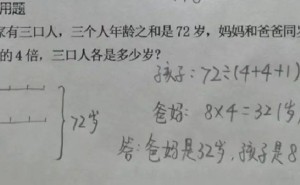 用题
家有三口人，三个人年龄之和是 72 岁，妈妈和爸爸同岁
的 4 倍，三口人各是多少岁?
孩子：72÷(4+4+1)
爸妈：8×4=32(岁)
72岁
答：爸妈是32岁，孩子是8